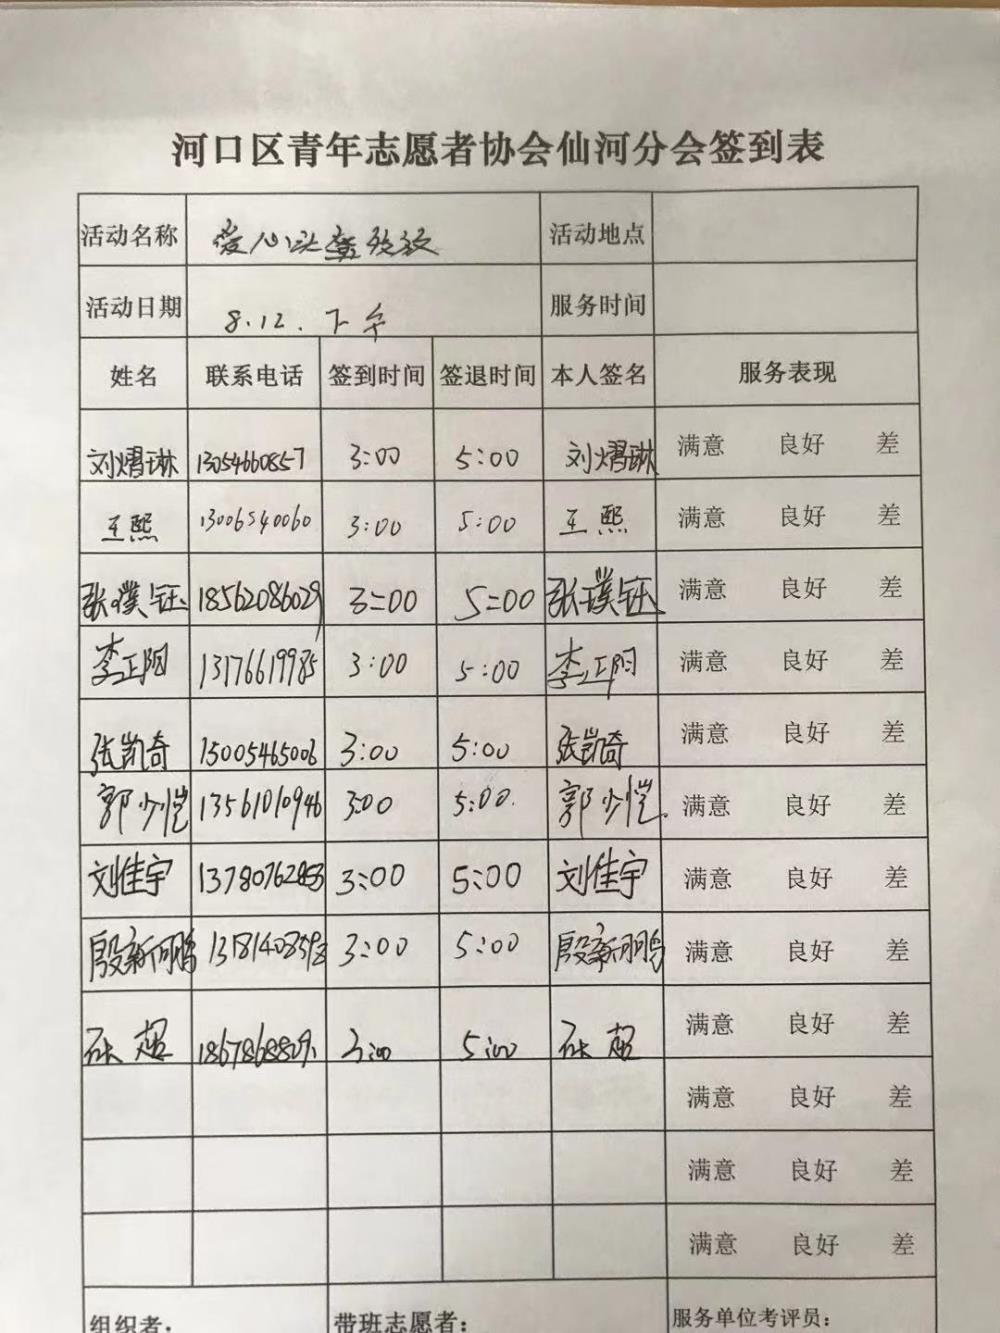 河口区青年志愿者协会仙河分会签到表
活动名称 爱心头盔发放 活动地点
活动日期 8.12. 下午 服务时间
姓名 联系电话 签到时间 签退时间 本人签名 服务表现
刘熠琳 13054660857 3:00 5:00 刘熠琳 满意 良好 差
王熙 13006540060 3:00 5:00 王熙 满意 良好 差
张璞钰 18562086029 3:00 5:00 张璞钰 满意 良好 差
李正阳 13176619985 3:00 5:00 李正阳 满意 良好 差
张凯奇 15005465006 3:00 5:00 张凯奇 满意 良好 差
郭少恺 13561010946 3:00 5:00. 郭少恺. 满意 良好 差
刘佳宇 13780762853 3:00 5:00 刘佳宇 满意 良好 差
殷新鹏 3:00 5:00 殷新鹏 满意 良好 差
超 3:00 5:00 超 满意 良好 差
满意 良好 差
满意 良好 差
满意 良好 差
组织者: 带班志愿者: 服务单位考评员: